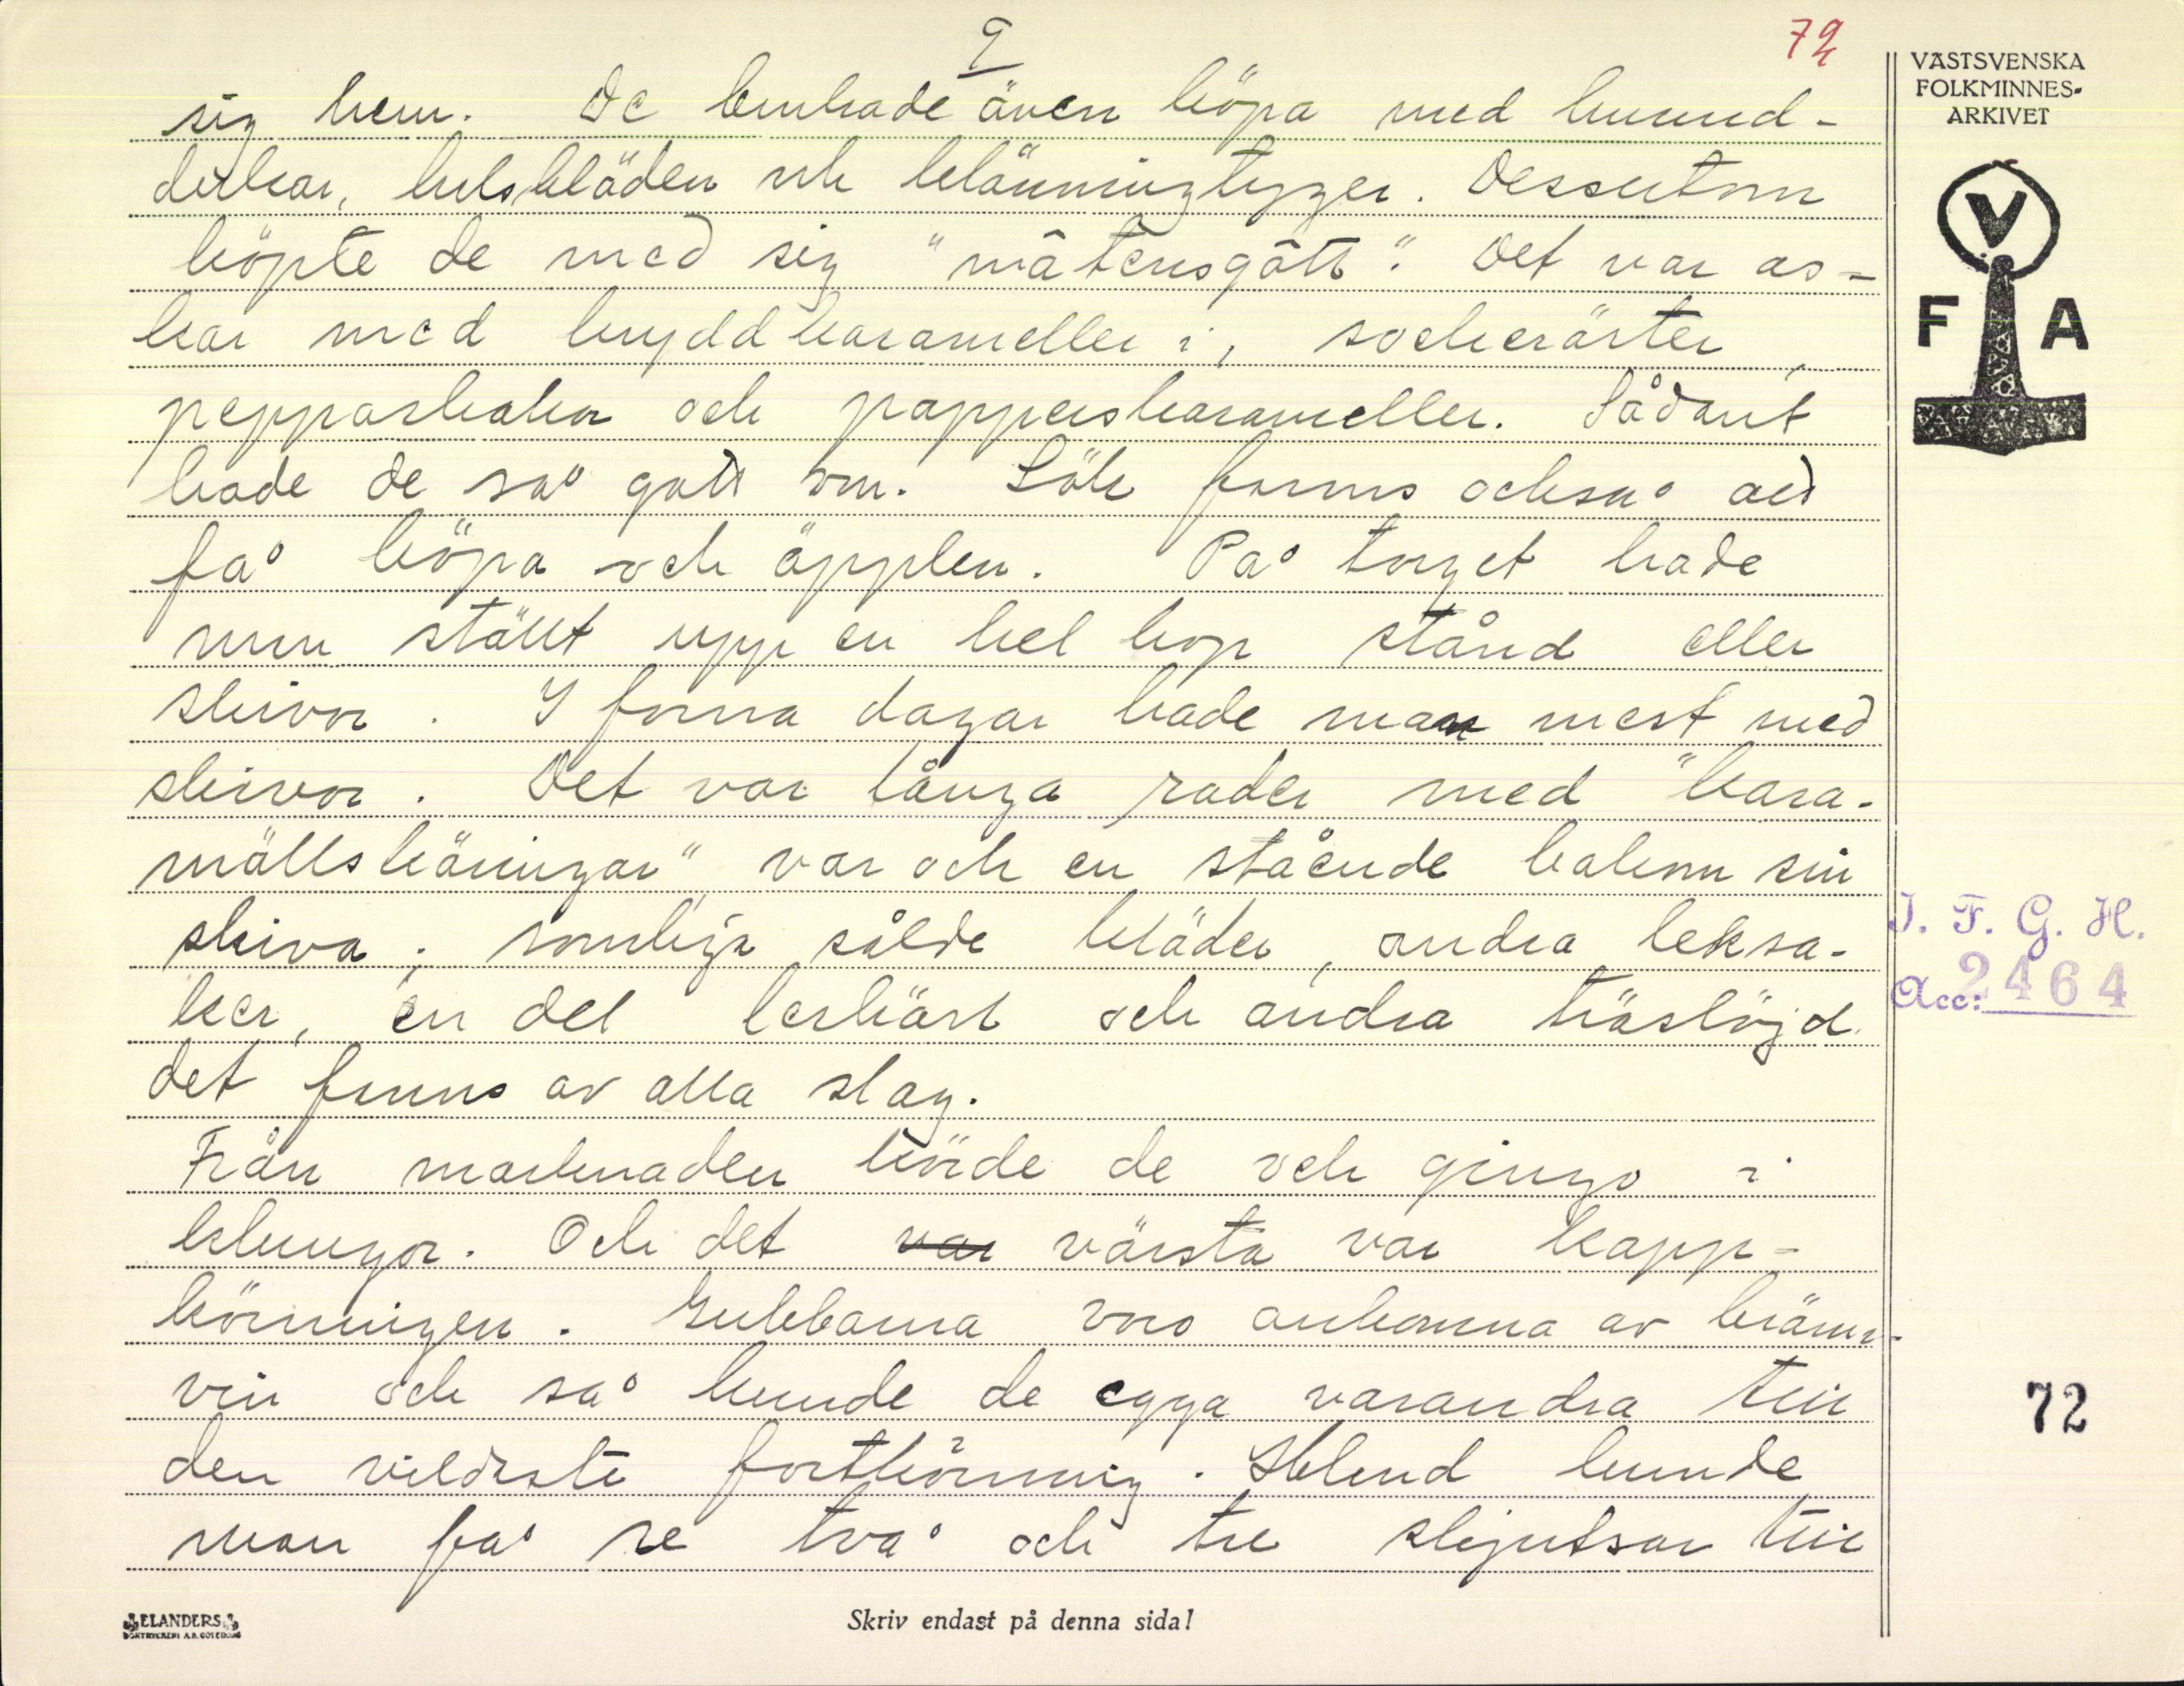 9
72
sig hem. De brukade även köpa med huvud-
dukar, halskläden och klänningtyger. Dessutom
köpte de med sig "mâtensgâtt". Det var as-
kar med kryddkarameller i, sockerärter,
pepparkakor och papperskarameller. Sådant
hade de så gott om. Lök fanns också att
få köpa och äpplen. På torget hade
man ställt upp en hel hop stånd eller
skivor. I forna dagar hade man mest med
skivor. Det var långa rader med "kara-
mällskäringar" var och en stående bakom sin
skiva; somliga sålde kläder, andra leksa-
ker, en del lerkärl och andra träslöjd
det fanns av alla slag.
Från marknaden körde de och gingo i
klungor. Och det var värsta var kapp-
körningen. Gubbarna voro ankomna av bränn-
vin och så kunde de egga varandra till
den vildaste fortkörning. Ibland kunde
man få se två och tre skjutsar till
VÄSTSVENSKA
FOLKMINNES-
ARKIVET
V
F A
I. F. G. H.
Acc: 2464
72
ELANDERS
BOKTRYCKERI A.B. GÖTEBORG
Skriv endast på denna sida!